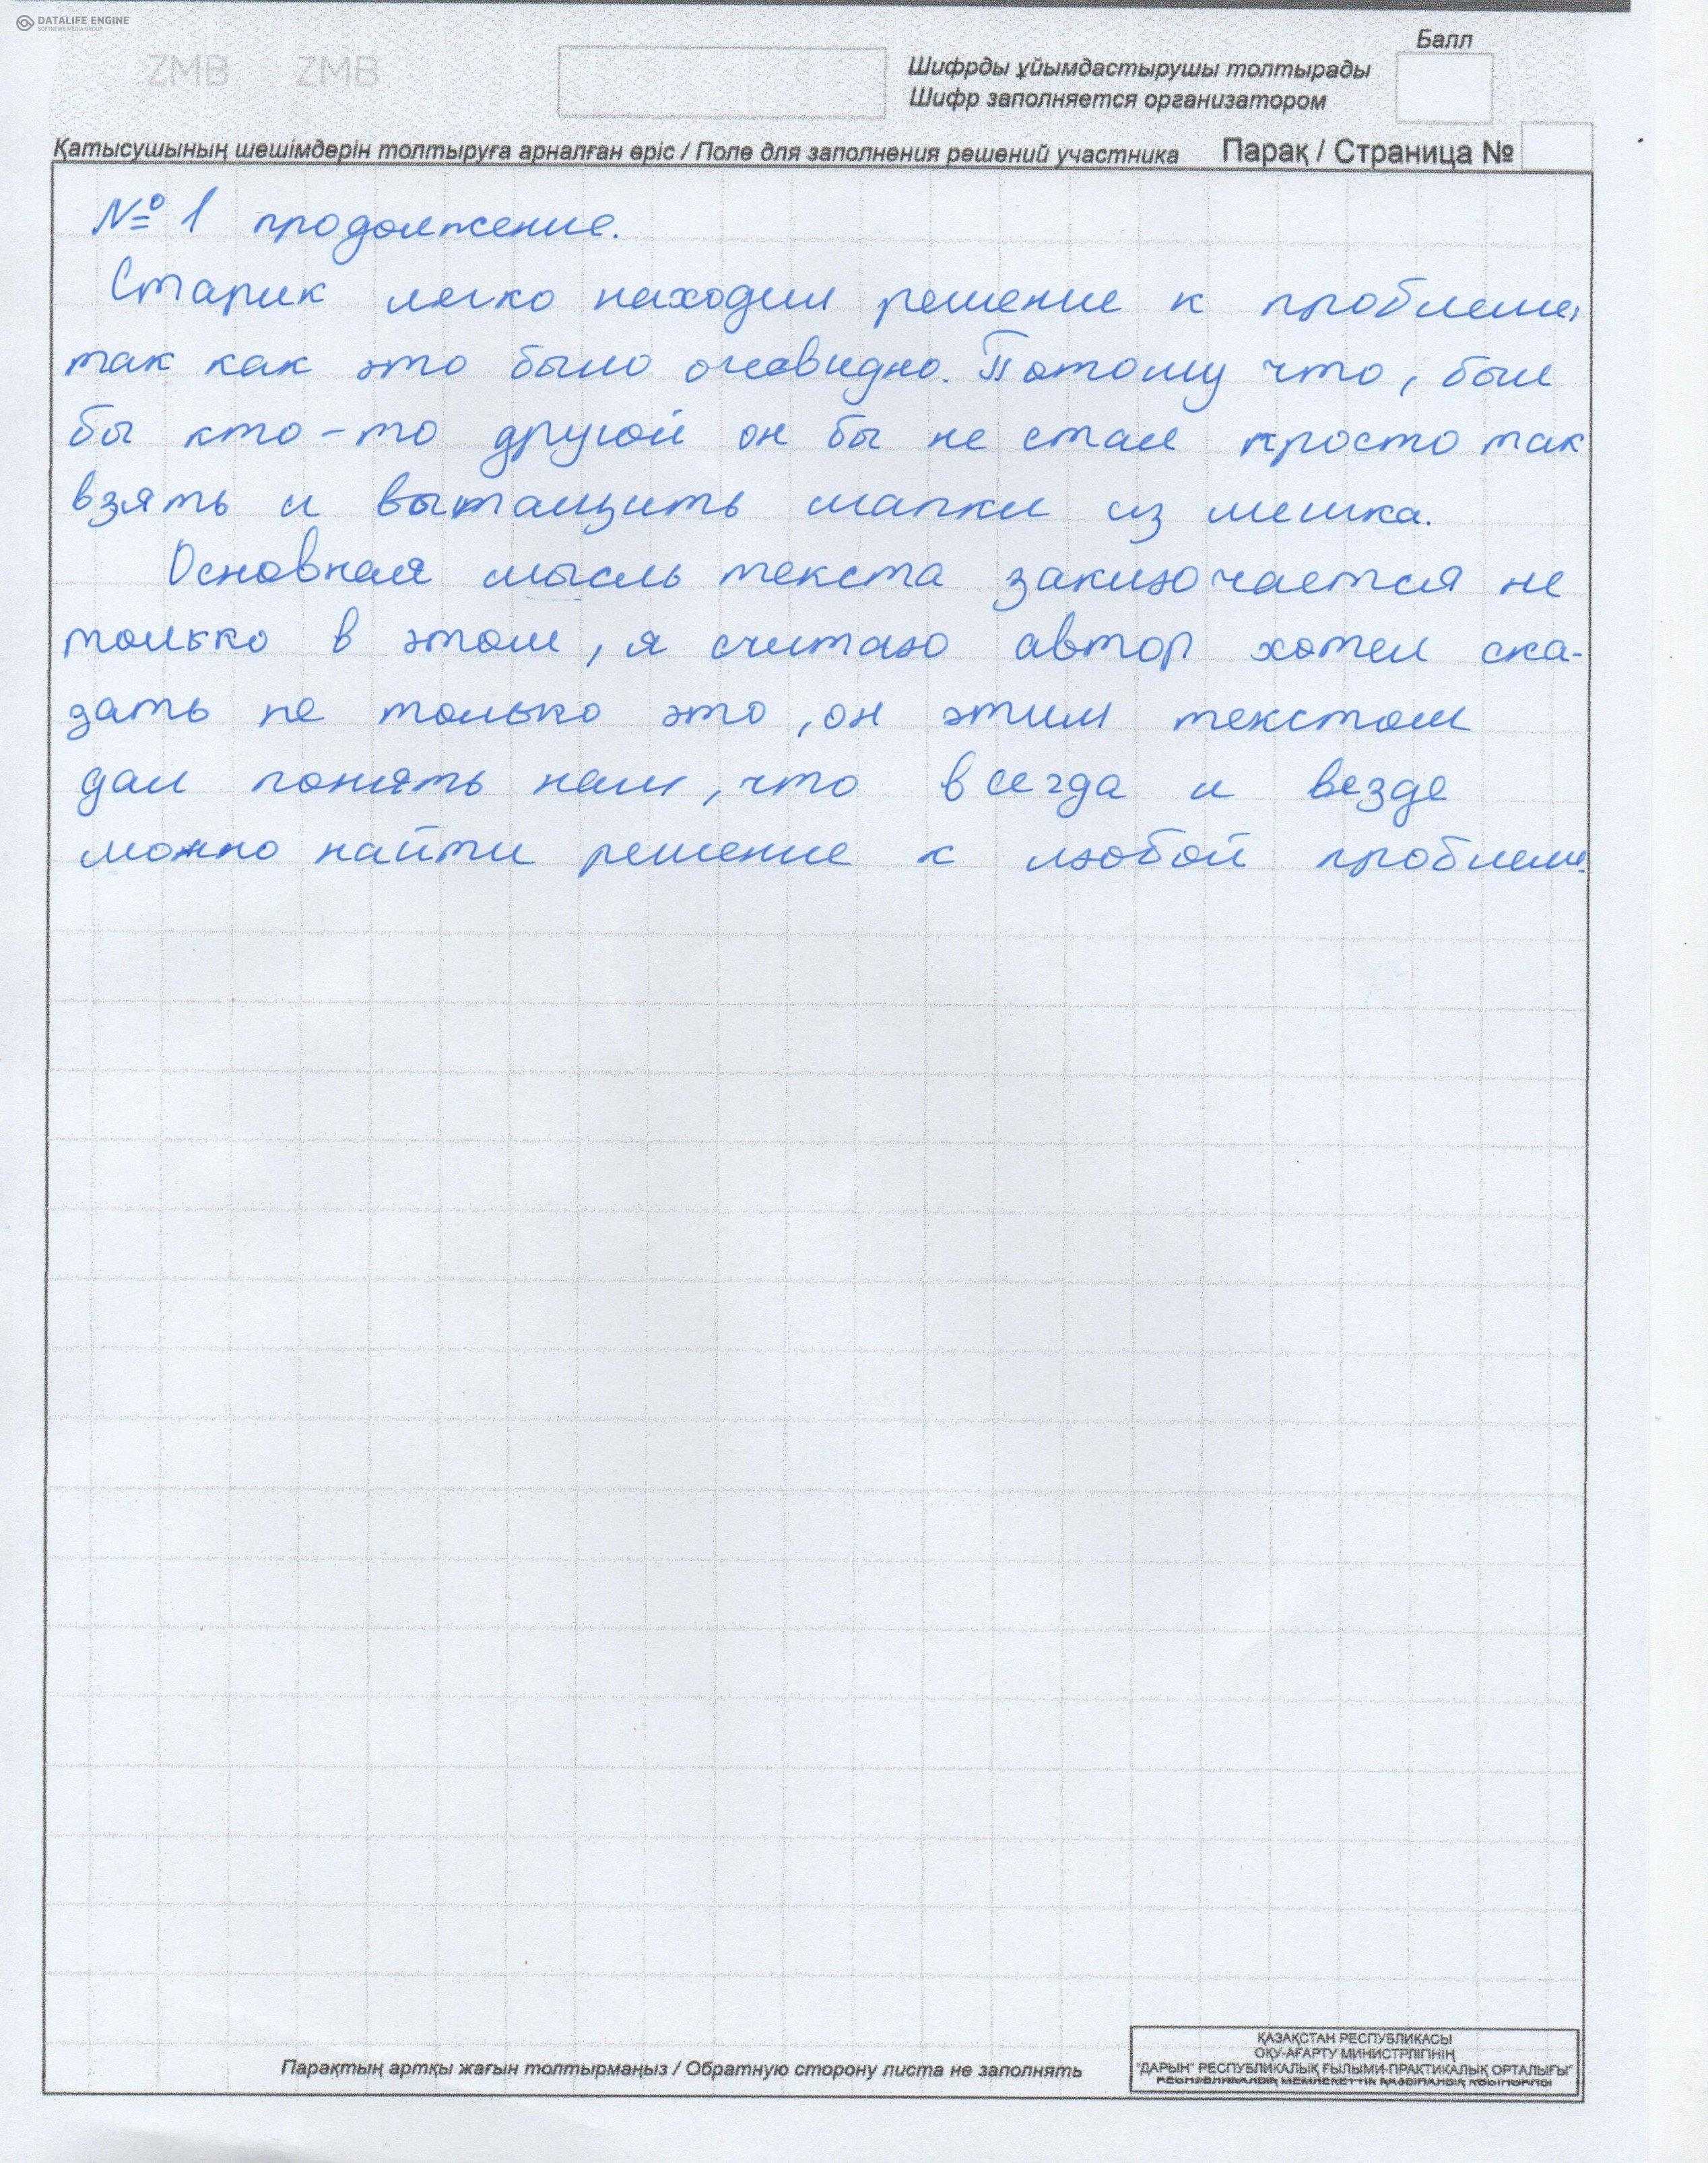 DATALIFE ENGINE
SOFTNEWS MEDIA GROUP
ZMB ZMB
Балл
Шифрды ұйымдастырушы толтырады
Шифр заполняется организатором
Қатысушының шешімдерін толтыруға арналған өріс / Поле для заполнения решений участника Парақ / Страница №
№ 1 продолжение.
Старик легко находил решение к проблеме,
так как это было очевидно. Потому что, был
бы кто-то другой он бы не стал просто так
взять и вытащить шапки из мешка.
Основная мысль текста заключается не
только в этом, я считаю автор хотел ска-
зать не только это, он этим текстом
дал понять нам, что всегда и везде
можно найти решение к любой проблеме.
Парақтың артқы жағын толтырмаңыз / Обратную сторону листа не заполнять
ҚАЗАҚСТАН РЕСПУБЛИКАСЫ
ОҚУ-АҒАРТУ МИНИСТРЛІГІНІҢ
"ДАРЫН" РЕСПУБЛИКАЛЫҚ ҒЫЛЫМИ-ПРАКТИКАЛЫҚ ОРТАЛЫҒЫ"